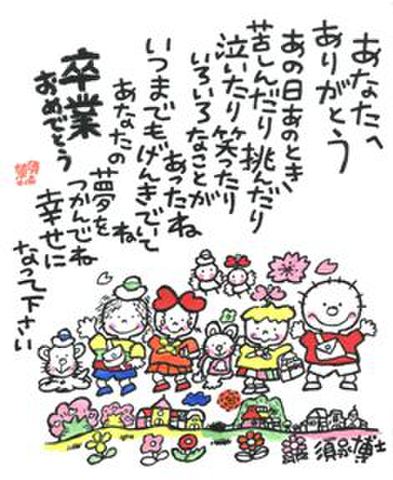 あなたへ
ありがとう
あの日あのとき、
苦しんだり挑んだり
泣いたり笑ったり
いろいろなことが
あったね
いつまでもげんきでいてね
あなたの
夢を
つかんでね
幸せに
なって下さい
卒業
おめでとう